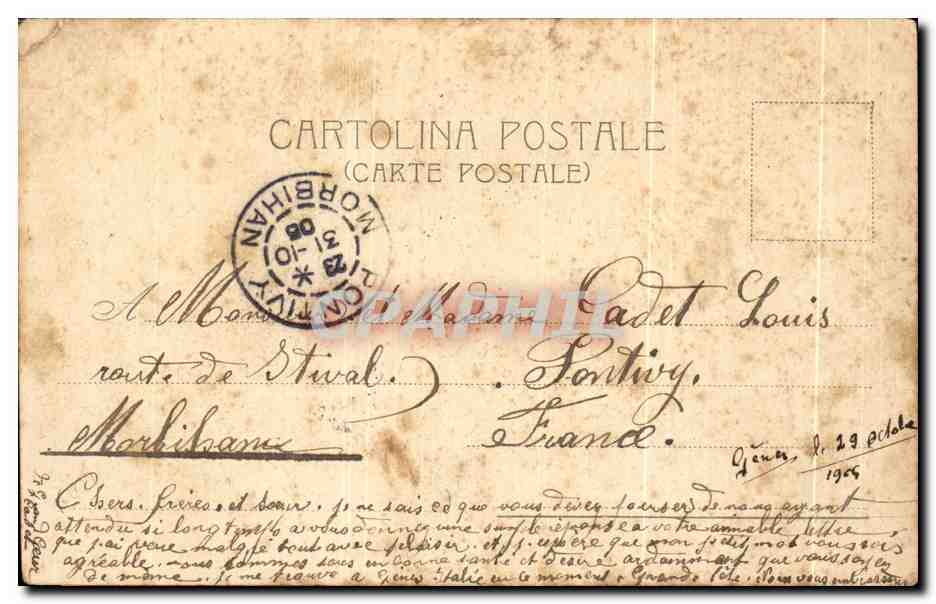 CARTOLINA POSTALE
(CARTE POSTALE)
PONTIVY
MORBIHAN
23
31-10
05
CPAPHIL
A Monsieur et Madame Cadet Louis
route de Stival. Pontivy.
Morbihan France.
Gênes, le 29 octobre
1905
Chers frères et soeur je ne sais ce que vous devez penser de nous ayant
attendu si longtemps a vous donner une simple réponse a votre aimable lettre
que j'ai reçue malgré tout avec plaisir et j'espère que mon petit mot vous sois
agréable. nous sommes tous en bonne santé et désire ardamment que vous soyez
de même. je me trouve a Gênes italie en ce moment. Grande fête. Nous vous embrassons